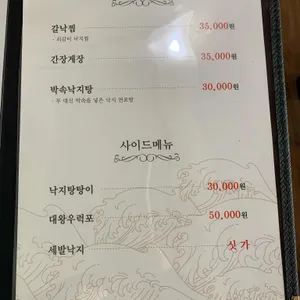 갈낙찜 35,000원
간장게장 35,000원
박속낙지탕 30,000원
- 무 대신 박속을 넣은 낙지 연포탕
사이드메뉴
낙지탕탕이 30,000원
대왕우럭포 50,000원
세발낙지 싯가